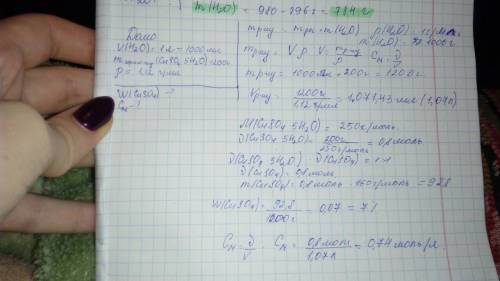 m(H₂O) = 980 - 196 г = 784 г
Дано
V(H₂O) = 1 л = 1000 мл
m (CuSO₄ 5H₂O) = 200 г
ρ = 1,12 г/мл
W(CuSO₄) - ?
Cм - ?
ρ(H₂O) = 1 г/мл
m(H₂O) = 1000 г
V = Cм = ν/V
= 1000 + 200 г = 1200 г
= 1200 г / 1,12 г/мл = 1,071,43 мл (1,07 л)
M(CuSO₄ 5H₂O) = 250 г/моль
ν(CuSO₄ 5H₂O) = 200 г / 250 г/моль = 0,8 моль
ν(CuSO₄ 5H₂O) : ν(CuSO₄) = 1:1
ν(CuSO₄) = 0,8 моль
m(CuSO₄) = 0,8 моль · 160 г/моль = 92,8
W(CuSO₄) = 92,8 / 1200 г = 0,07 = 7%
Cм = ν/V Cм = 0,8 моль / 1,07 л = 0,74 моль/л